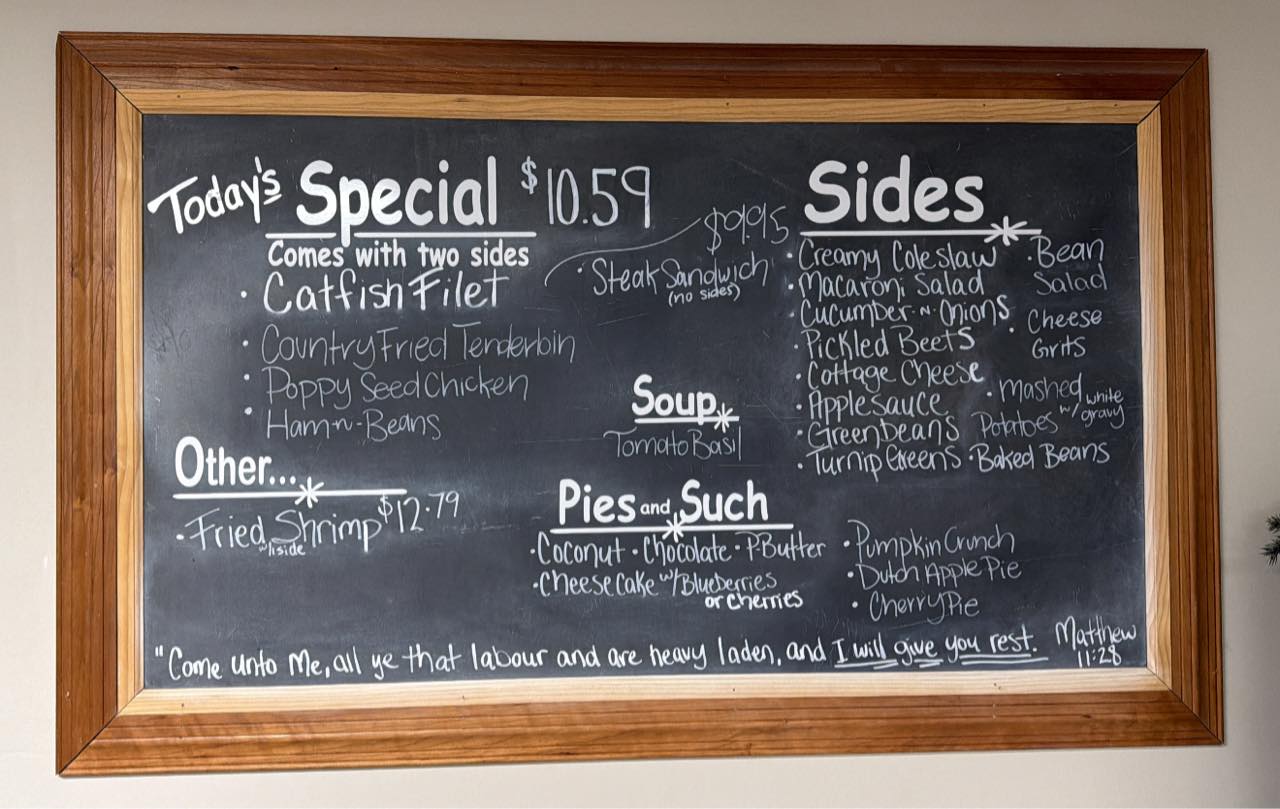 Today's Special $10.59
Comes with two sides
· Catfish Filet
· Country Fried Tenderloin
· Poppy Seed Chicken
· Ham-n-Beans
$9.95
· Steak Sandwich
(no sides)
Other...
· Fried Shrimp $12.79
w/1side
Soup
Tomato Basil
Sides
· Creamy Coleslaw
· Macaroni Salad
· Cucumber-n-Onions
· Pickled Beets
· Cottage Cheese
· Applesauce
· Green Beans
· Turnip Greens
· Bean
Salad
· Cheese
Grits
· Mashed
Potatoes w/ white
gravy
· Baked Beans
Pies and Such
· Coconut · Chocolate · P.Butter
· Cheese Cake w/Blueberries
or Cherries
· Pumpkin Crunch
· Dutch Apple Pie
· Cherry Pie
"Come unto Me, all ye that labour and are heavy laden, and I will give you rest. Matthew
11:28